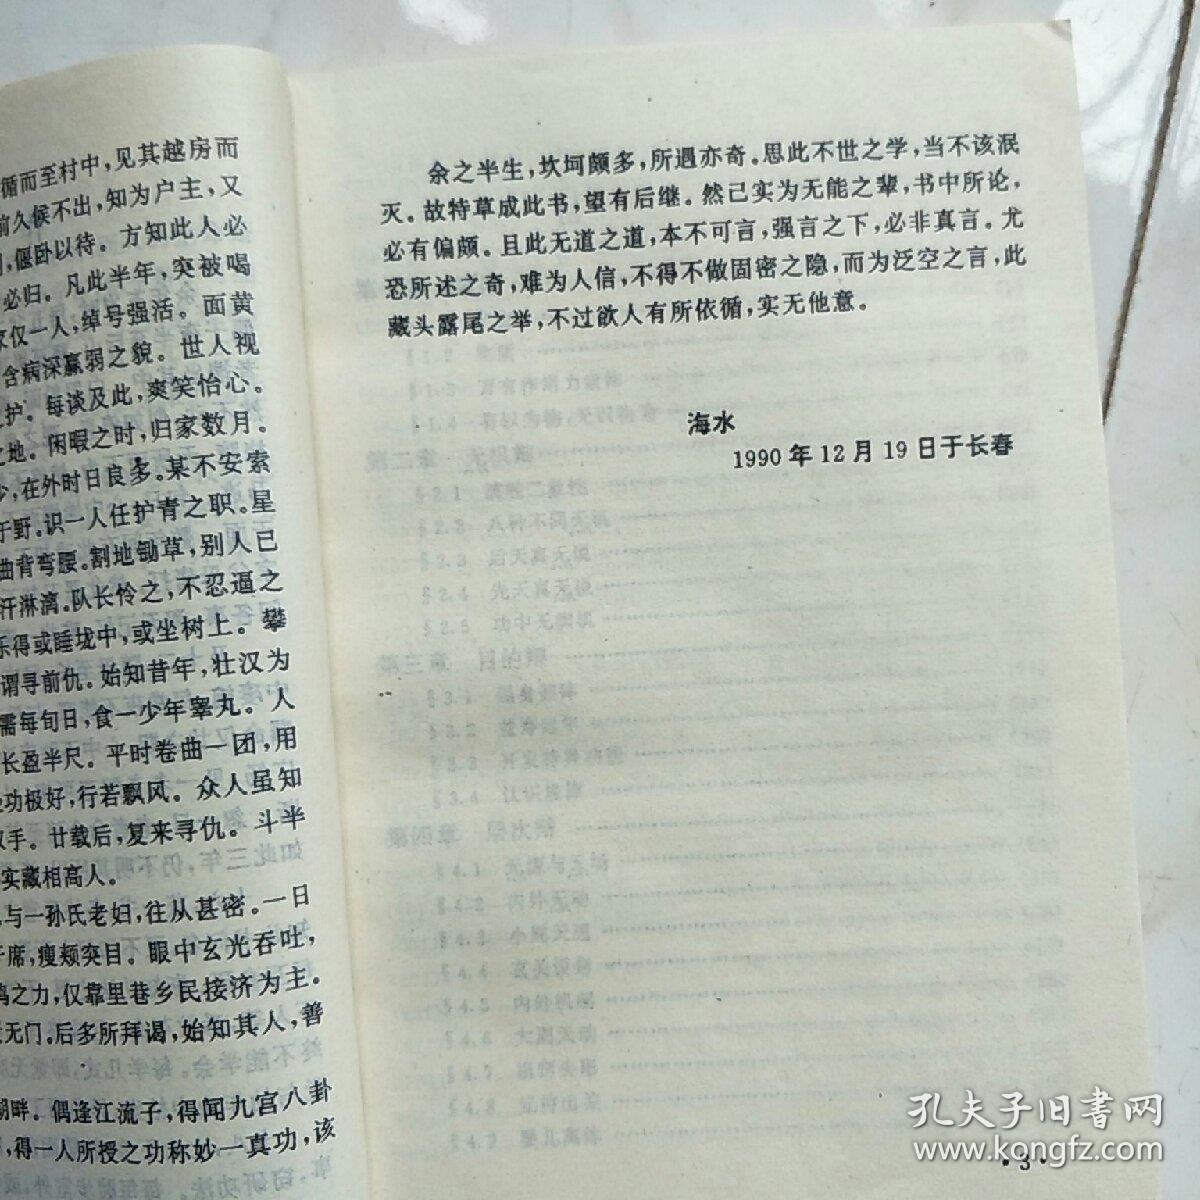 循而至村中，见其越房而
前久候不出，知为户主，又
，偃卧以待。方知此人必
必归。凡此半年，突被喝
家仅一人，绰号强活。面黄
含病深羸弱之貌。世人视
之护。每谈及此，爽笑怡心。
之地。闲暇之时，归家数月。
少，在外时日良多。某不安索
于野。识一人任护青之职。星
曲背弯腰。割地锄草，别人已
汗淋漓。队长怜之，不忍逼之
乐得或睡垅中，或坐树上。攀
谓寻前仇。始知昔年，壮汉为
需每旬日，食一少年睾丸。人
长盈半尺。平时卷曲一团，用
功极好，行若飘风。众人虽知
手。廿载后，复来寻仇。斗半
实藏相高人。
与一孙氏老妇，往从甚密。一日
席，瘦颊突目。眼中玄光吞吐，
之力，仅靠里巷乡民接济为主。
无门。后多所拜谒，始知其人，善
湖畔。偶逢江流子，得闻九宫八卦
，得一人所授之功称妙一真功，该
余之半生，坎坷颇多，所遇亦奇。思此不世之学，当不该泯
灭。故特草成此书，望有后继。然己实为无能之辈，书中所论，
必有偏颇。且此无道之道，本不可言，强言之下，必非真言。尤
恐所述之奇，难为人信，不得不做固密之隐，而为泛空之言，此
藏头露尾之举，不过欲人有所依循，实无他意。
海水
1990年12月19日于长春
·3·
孔夫子旧书网
www.kongfz.com